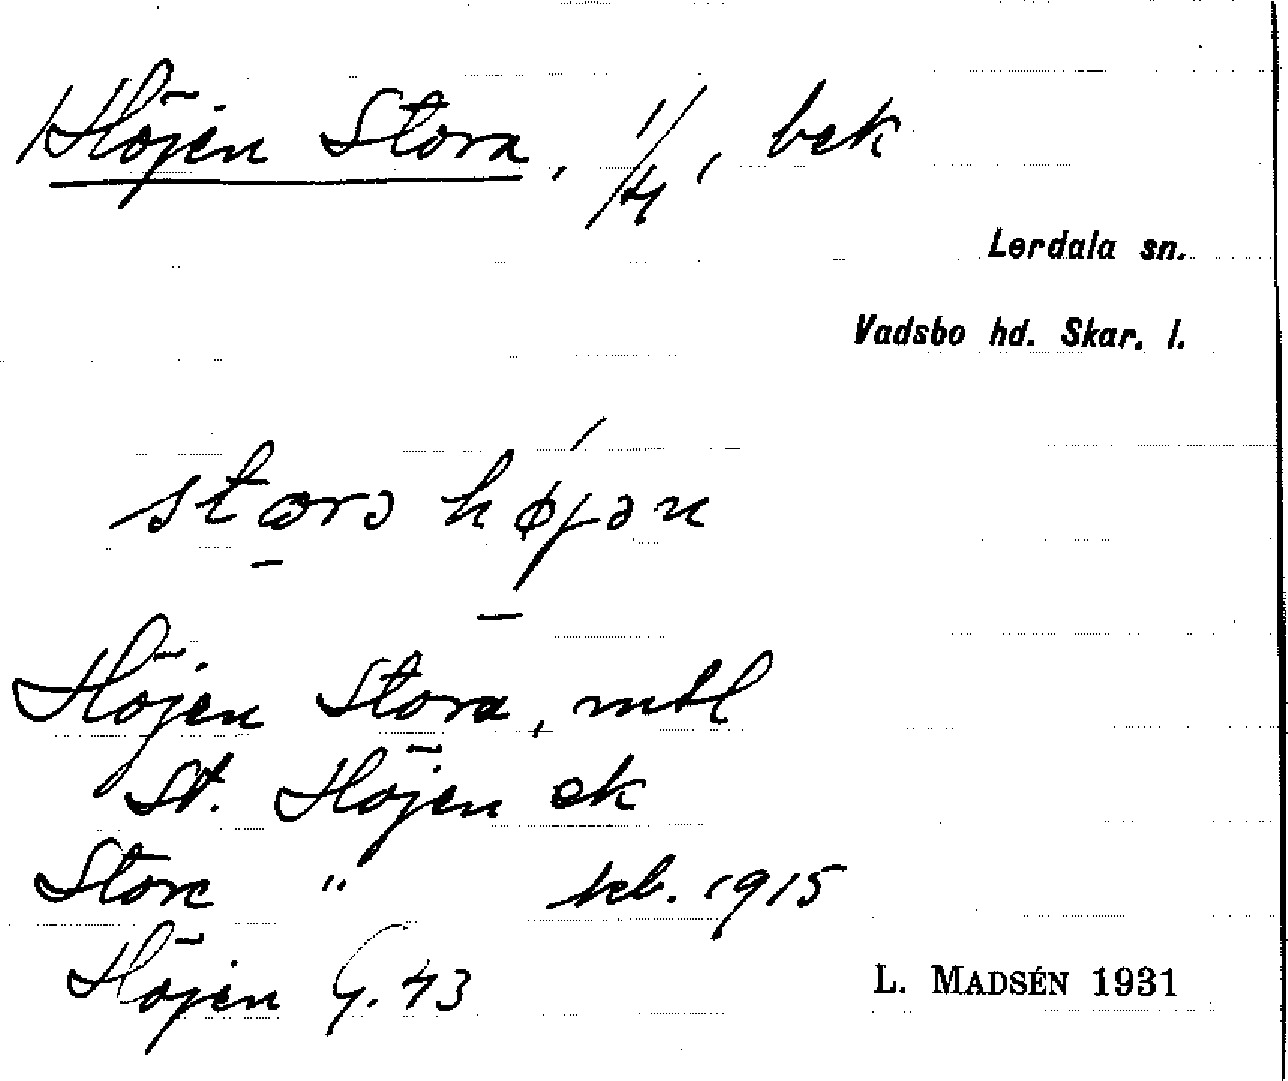 Höjen Stora, 1/4, bek
Lerdala sn.
Vadsbo hd. Skar. l.
stɷrɔ højən
Höjen Stora, mtl
St. Höjen ek
Stora " kb. 1915
Höjen G. 43
L. MADSÉN 1931